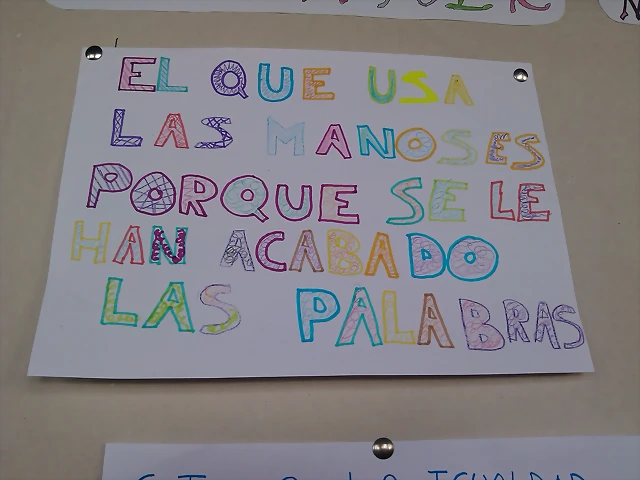 EL QUE USA
LAS MANOS ES
PORQUE SE LE
HAN ACABADO
LAS PALABRAS
IGUALDAD